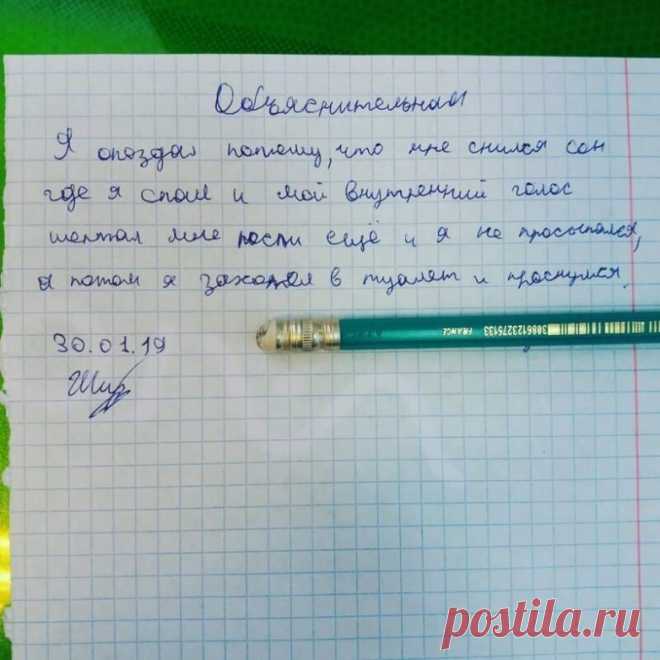 Объяснительная
Я опоздал потому, что мне снился сон
где я спал и мой внутренний голос
шептал мне поспи ещё и я не просыпался,
а потом я захотел в туалет и проснулся.
30.01.19
FRANCE
3086123275133
postila.ru